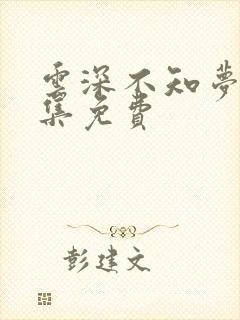 雲深不知夢
集免費
彭建文